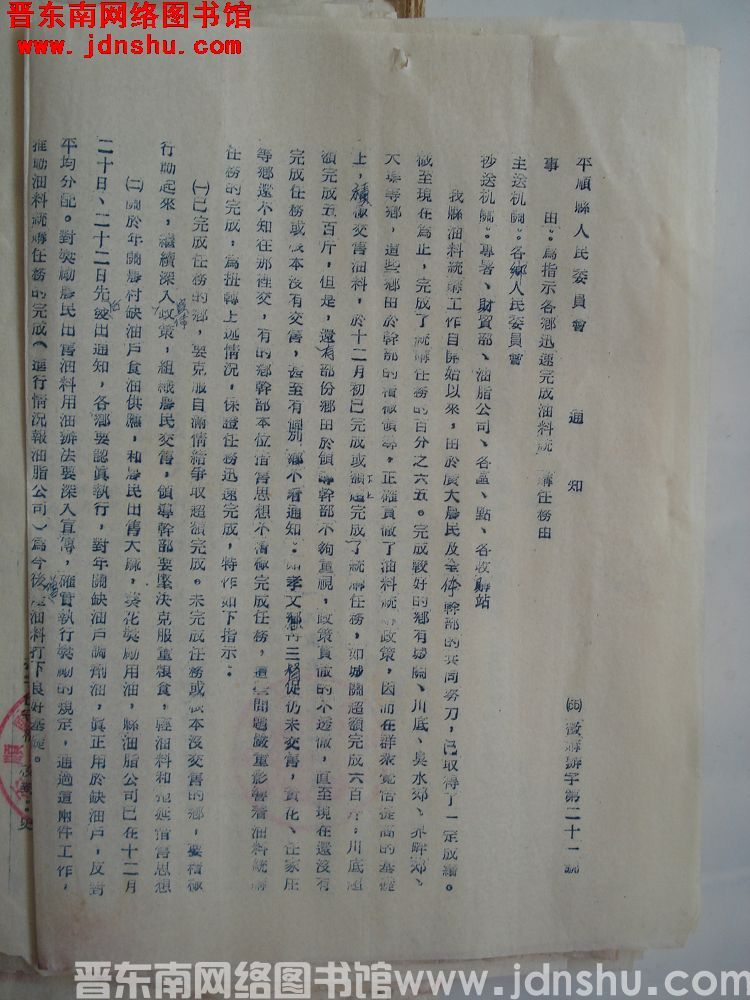 晋东南网络图书馆
www.jdnshu.com
平順縣人民委員會 通知
徵購辦字第二十一號
事 由：為指示各鄉迅速完成油料統購任務由
主送机關：各鄉人民委員會
抄送机關：專署、財貿部、油脂公司、各區、點、各收購站
我縣油料統購工作自開始以來，由於廣大農民及全体幹部的共同努力，已取得了一定成績。
截至現在為止，完成了統購任務的百分之六五。完成較好的鄉有城關、川底、
等鄉，這些鄉由於幹部的積極領導，正確貫徹了油料統購政策，因而在群衆覚悟提高的基礎
上，積極交售油料，於十二月初已完成或超額完成了統購任務，如城關超額完成六百斤，川底超
額完成五百斤，但是，還有部份鄉由於領導幹部不夠重視，政策貫徹的不透徹，直至現在還沒有
完成任務或根本沒有交售，甚至有個別鄉不看通知：如孝文鄉再三催促仍未交售，黃花、任家庄
等鄉還不知在那裡交，有的鄉幹部本位惜售思想不積極完成任務，這些問題嚴重影響着油料統購
任務的完成，為扭轉上述情況，保證任務迅速完成，特作如下指示：
（一）已完成任務的鄉，要克服自滿情緒爭取超額完成。未完成任務或根本沒交售的鄉，要積極
行動起來，繼續深入宣傳政策，組織農民交售，領導幹部要堅決克服重粮食，輕油料和拖延惜售思想
（二）關於年關農村缺油戶食油供應，和農民出售大麻，葵花奨勵用油，縣油脂公司已在十二月
二十日、二十二日先後發出通知，各鄉要認眞執行，對年關缺油戶調劑油，眞正用於缺油戶，反對
平均分配。對奨勵農民出售油料用油辦法要深入宣傳，確實執行奨勵的規定，通過這兩件工作，
推動油料統購任務的完成（進行情況報油脂公司）為今後油料打下良好基礎。
晋东南网络图书馆 www.jdnshu.com